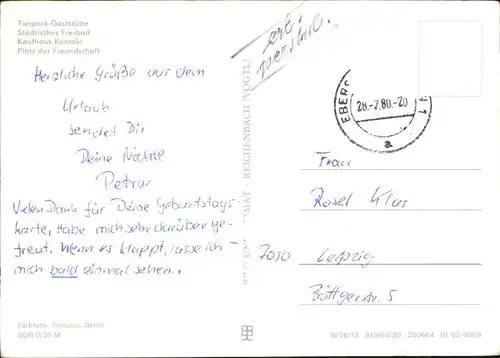 Tierpark-Gaststätte
Städtisches Freibad
Kaufhaus Kontakt
Platz der Freundschaft
Herzliche Grüße aus dem
Urlaub
sendet Dir
Deine
Petra
Vielen Dank für Deine Geburtstags-
karte, Habe mich sehr darüber ge-
freut. Wenn es klappt, lasse ich
mich bald einmal sehen.
Farbfoto: Darazau, Berlin
DDR 0,20 M
REICHENBACH (VOGTL)
EBERS 11
28.-7.80.-20
a
Frau
Rosel Klas
7030 Leipzig
Böttgerstr. 5
III/26/13 A1/664/80 280664 01 05 0069